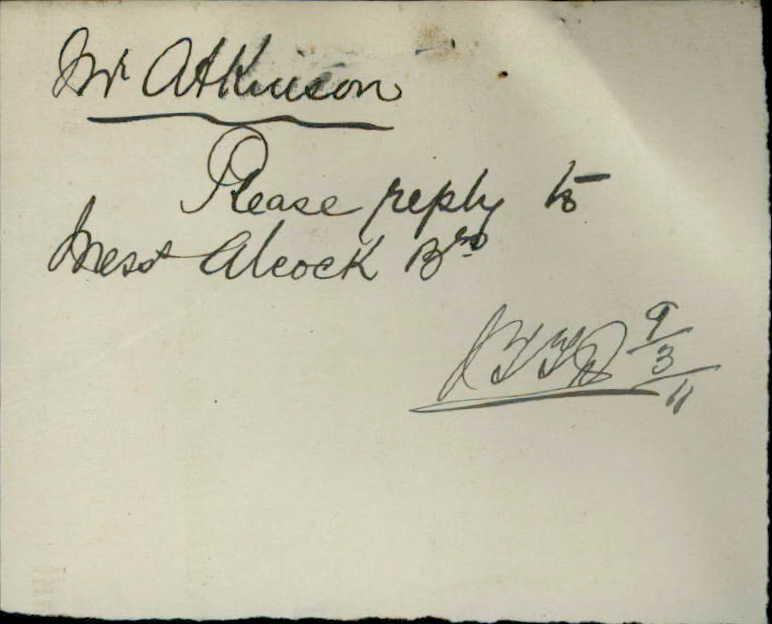 Mr Atkinson
Please reply to
Mess Alcock Bros
9/3/11